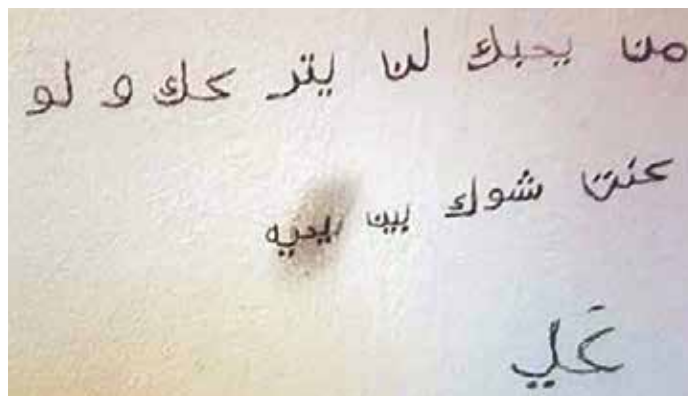 من يحبك لن يتر كك و لو
كنت شوك بين ييديه
علي